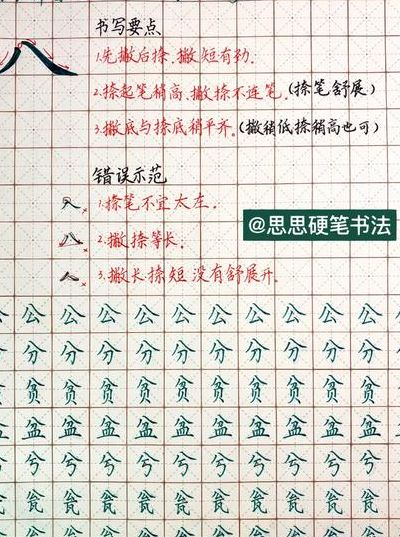 八
书写要点
1.先撇后捺,撇短有劲.
2.捺起笔稍高,撇捺不连笔.(捺笔舒展)
3.撇底与捺底稍平齐.(撇稍低捺稍高也可)
错误示范
八 1.捺笔不宜太左.
八 2.撇捺等长.
八 3.撇长捺短没有舒展开.
@思思硬笔书法
公公公公公公公公公公
分分分分分分分分分分
贫贫贫贫贫贫贫贫贫贫
盆盆盆盆盆盆盆盆盆盆
兮兮兮兮兮兮兮兮兮兮
瓮瓮瓮瓮瓮瓮瓮瓮瓮瓮